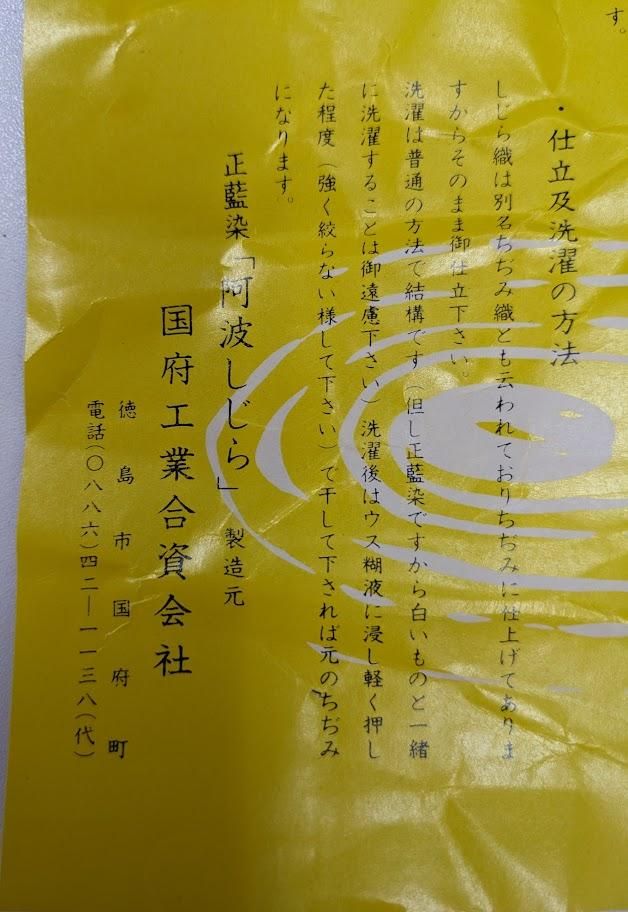 す。
・仕立及洗濯の方法
しじら織は別名ちぢみ織とも云われておりちぢみに仕上げてありま
すからそのまま御仕立下さい。
洗濯は普通の方法で結構です（但し正藍染ですから白いものと一緒
に洗濯することは御遠慮下さい）洗濯後はウス糊液に浸し軽く押し
た程度（強く絞らない様して下さい）で干して下されば元のちぢみ
になります。
正藍染「阿波しじら」製造元
国府工業合資会社
徳島市国府町
電話(〇八八六)四二―一一三八(代)